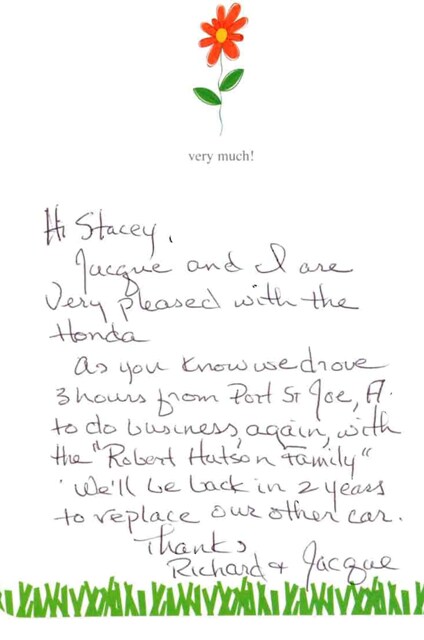 very much!
Hi Stacey,
Jacque and I are
very pleased with the
Honda
As you know we drove
3 hours from Port St Joe, Fl.
to do business, again, with
the "Robert Hutson Family"
We'll be back in 2 years
to replace our other car.
Thanks
Richard & Jacque